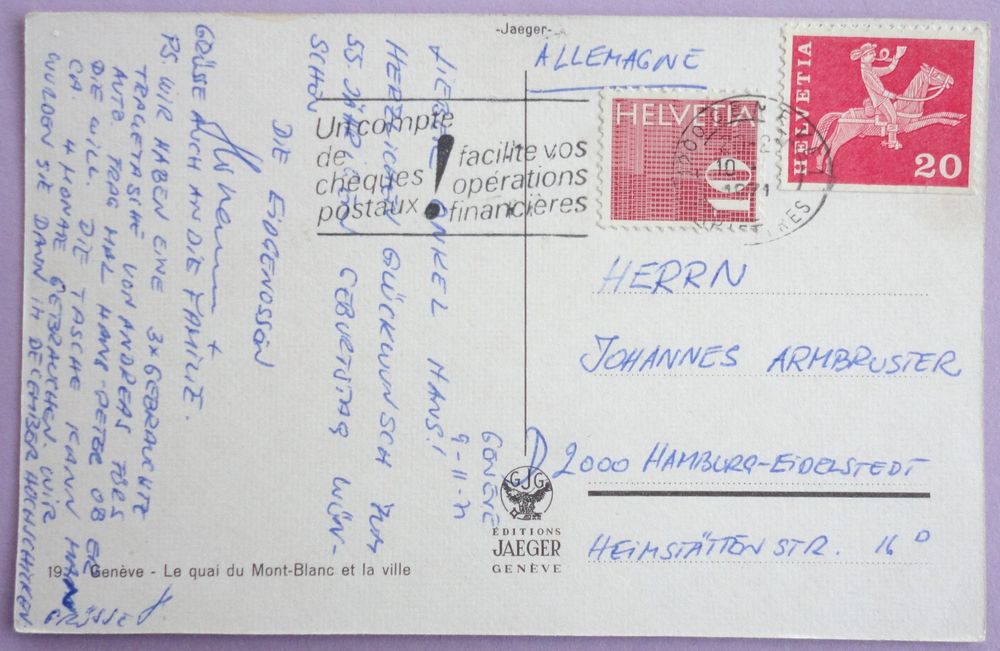 -Jaeger-
ALLEMAGNE
HELVETIA
20
HELVETIA
10
10
1971
Un compte
de
chèques
postaux
!
facilite vos
opérations
financières
GENÈVE
9-11-71
LIEBER ONKEL HANS!
HERZLICHEN GLÜCKWUNSCH ZUM
55 JÄHRIGEN GEBURTSTAG WÜN-
SCHEN
DIE EIDGENOSSEN
GRÜSSE AUCH AN DIE FAMILIE.
PS. WIR HABEN EINE 3x GEBRAUCHTE
TRAGETASCHE VON ANDREAS FÜRS
AUTO. FRAG MAL HANS-PETER OB ER
DIE WILL. DIE TASCHE KANN MAN
CA. 4 MONATE GEBRAUCHEN. WIR
WÜRDEN SIE DANN IM DECEMBER HOCHSCHICKEN
GRÜSSE
HERRN
JOHANNES ARMBRUSTER
D 2000 HAMBURG-EIDELSTEDT
HEIMSTÄTTENSTR. 16 D
GJG
ÉDITIONS
JAEGER
GENÈVE
Genève - Le quai du Mont-Blanc et la ville